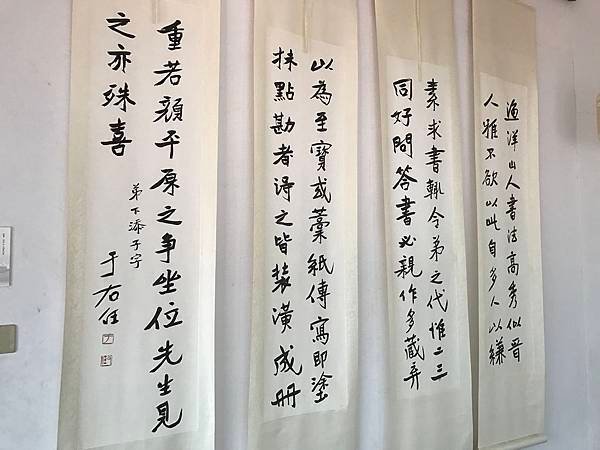 漁洋山人書法高秀似晉
人雅不欲以此自多人以縑
素求書輒令弟之代惟二三
同好問答書必親作多藏弆
以為至寶或藁紙傳寫即塗
抹點勘者得之皆裝潢成冊
重若顏平原之爭坐位先生見
之亦殊喜
弟下添子字
于右任